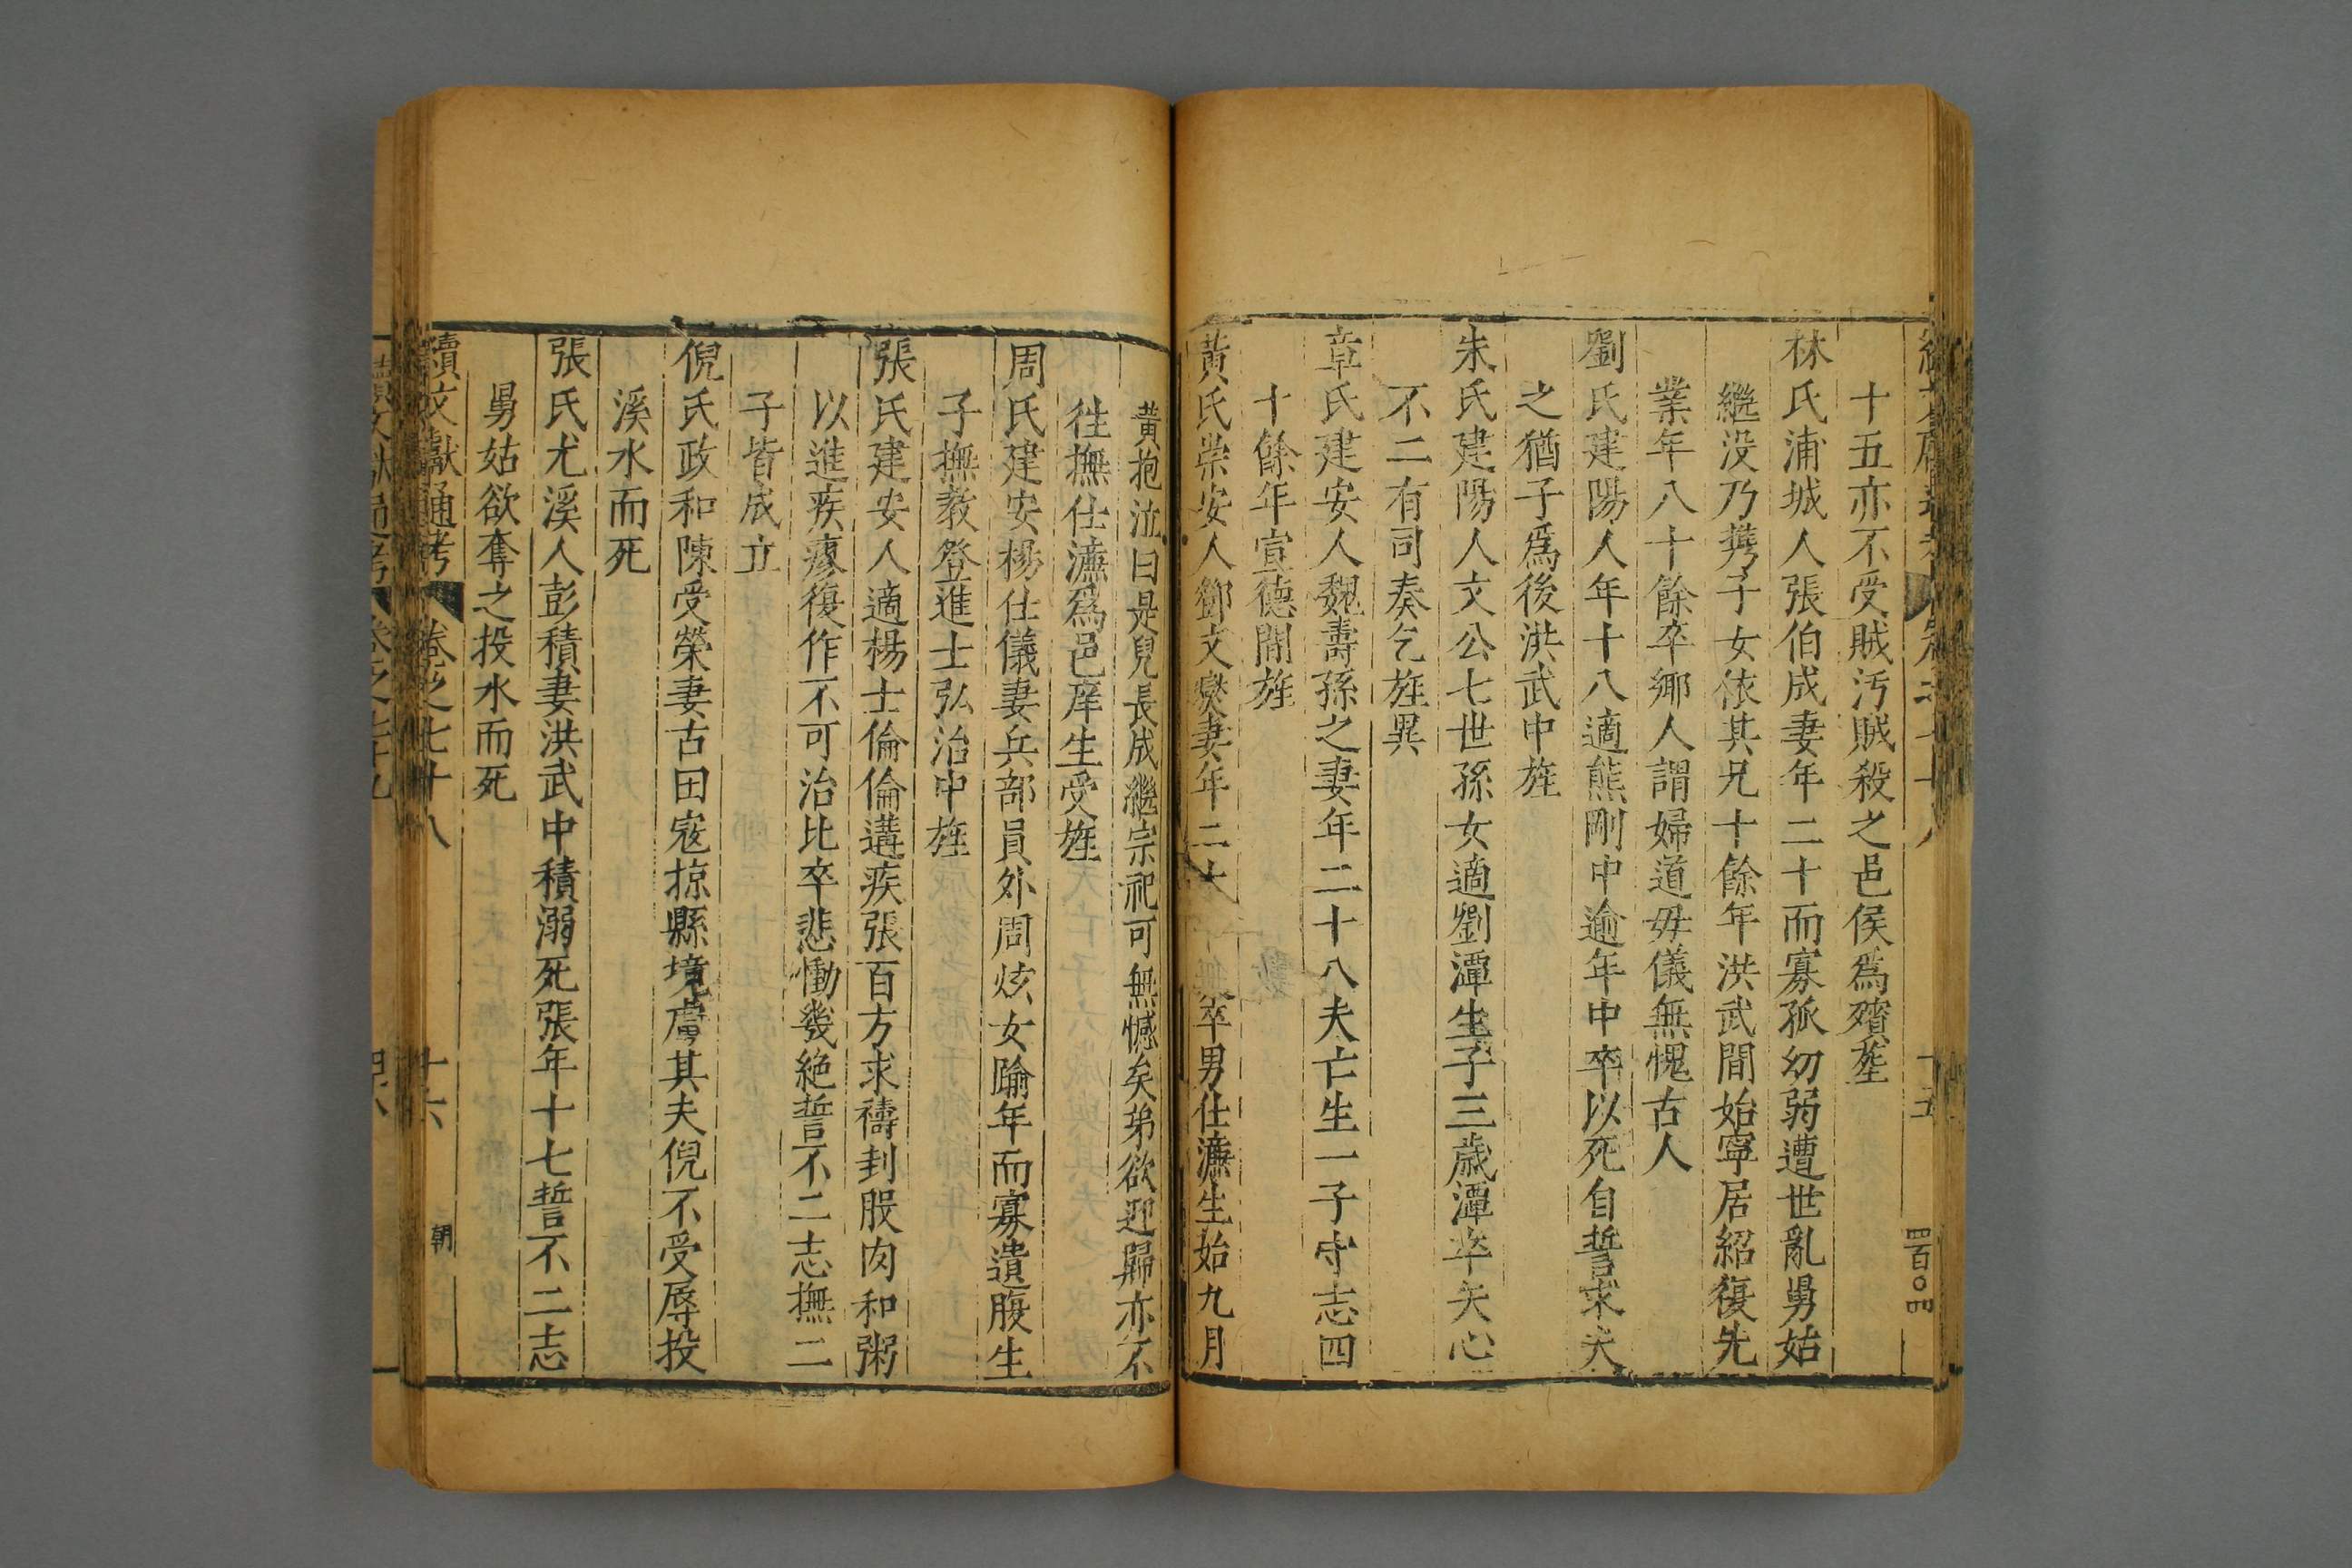 十五亦不受賊汚賊殺之邑侯爲殯塟
林氏浦城人張伯成妻年二十而寡孤幼弱遭世亂舅始
繼没乃携子女依其兄十餘年洪武間始寧居紹復先
業年八十餘卒鄉人謂婦道毋儀無愧古人
劉氏建陽人年十八適熊剛中逾年中卒以死自誓求夫
之猶子爲後洪武中旌
朱氏建陽人文公七世孫女適劉潭生子三歲潭卒矢心
不二有司奏乞旌異
章氏建安人魏壽孫之妻年二十八夫亡生一子守志四
十餘年宣德間旌
黃氏崇安人鄧文燮妻年二十 卒男仕濂生始九月
黃抱泣曰是兒長成繼宗祀可無憾矣弟欲迎歸亦不
徃撫仕濂爲邑庠生受旌
周氏建安楊仕儀妻兵部員外周炫女踰年而寡遺腹生
子撫教登進士弘治中旌
張氏建安人適楊士倫倫遘疾張百方求禱刲股肉和粥
以進疾瘳復作不可治比卒悲慟幾絶誓不二志撫二
子皆成立
倪氏政和陳受榮妻古田寇掠縣境虜其夫倪不受辱投
溪水而死
張氏尤溪人彭積妻洪武中積溺死張年十七誓不二志
舅姑欲奪之投水而死
續文獻通考 卷之七十八 十六 朝
四百〇四